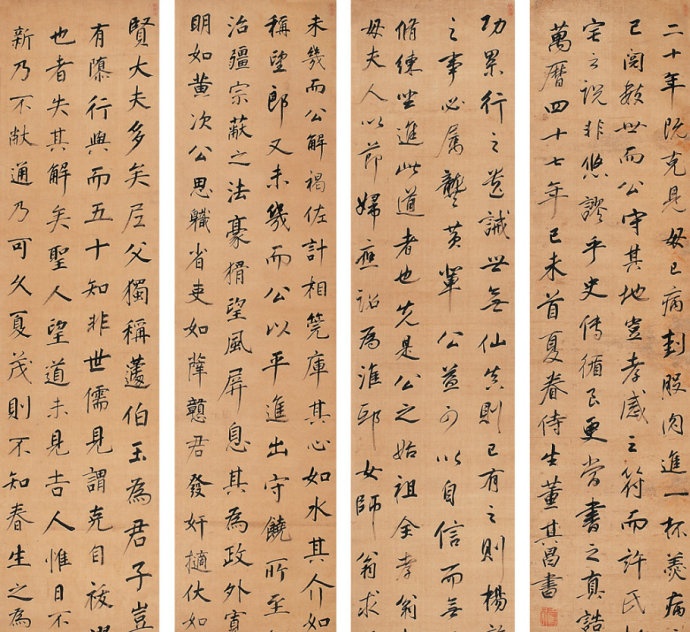 賢大夫多矣尼父獨稱蘧伯玉為君子豈
有隳行與而五十知非世儒見謂克自祓
也者失其解矣聖人望道未見吉人惟日不
新乃不敝通乃可久夏茂則不知春生之為
未幾而公解褐佐計相筦庫其心如水其介如
稱望郎又未幾而公以平進出守饒所至
治疆宗蔽之法豪猾望風屏息其為政外寬
明如黄次公思職省吏如薛戇君發奸擿伏如
功累行之誠世無仙真則已有之則楊許
之事必屬龔黄軰公益可以自信而無
脩練坐進此道者也先是公之始祖全孝翁
母夫人以節婦應詔為淮邸女師翁求
二十年既克見母已病刲股肉進一杯羹病
已閱數世而公守其地豈孝感之符而許氏
宅之說非悠謬乎史傳循良更當書之真誥
萬曆四十七年己未首夏眷侍生董其昌書